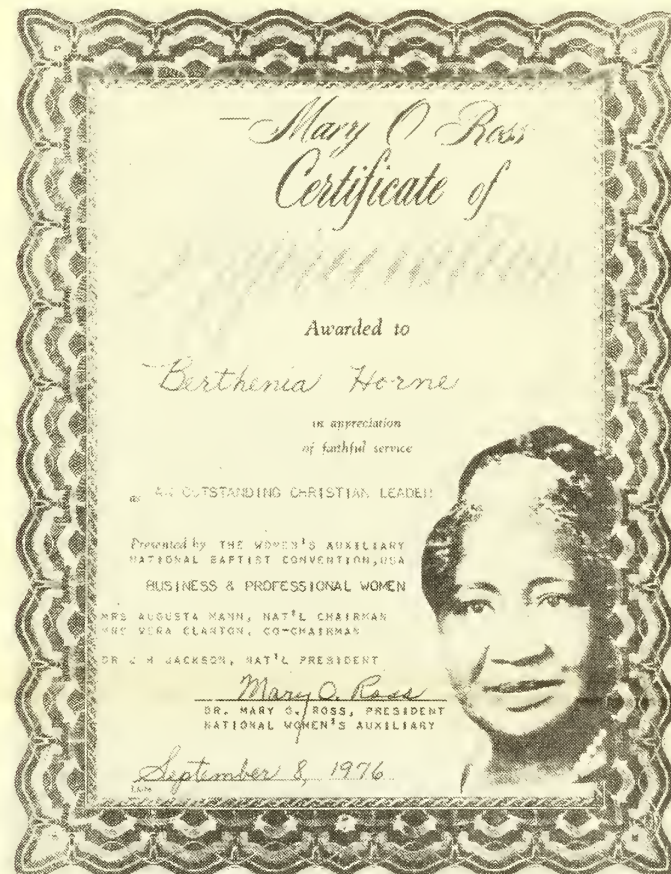 Mary O Ross
Certificate of
Appreciation
Awarded to
Berthenia Horne
in appreciation
of faithful service
as AN OUTSTANDING CHRISTIAN LEADER
Presented by THE WOMEN'S AUXILIARY
NATIONAL BAPTIST CONVENTION, USA
BUSINESS & PROFESSIONAL WOMEN
MRS AUGUSTA MANN, NAT'L CHAIRMAN
MRS VERA CLANTON, CO-CHAIRMAN
DR J H JACKSON, NAT'L PRESIDENT
Mary O. Ross
DR. MARY O. ROSS, PRESIDENT
NATIONAL WOMEN'S AUXILIARY
September 8, 1976